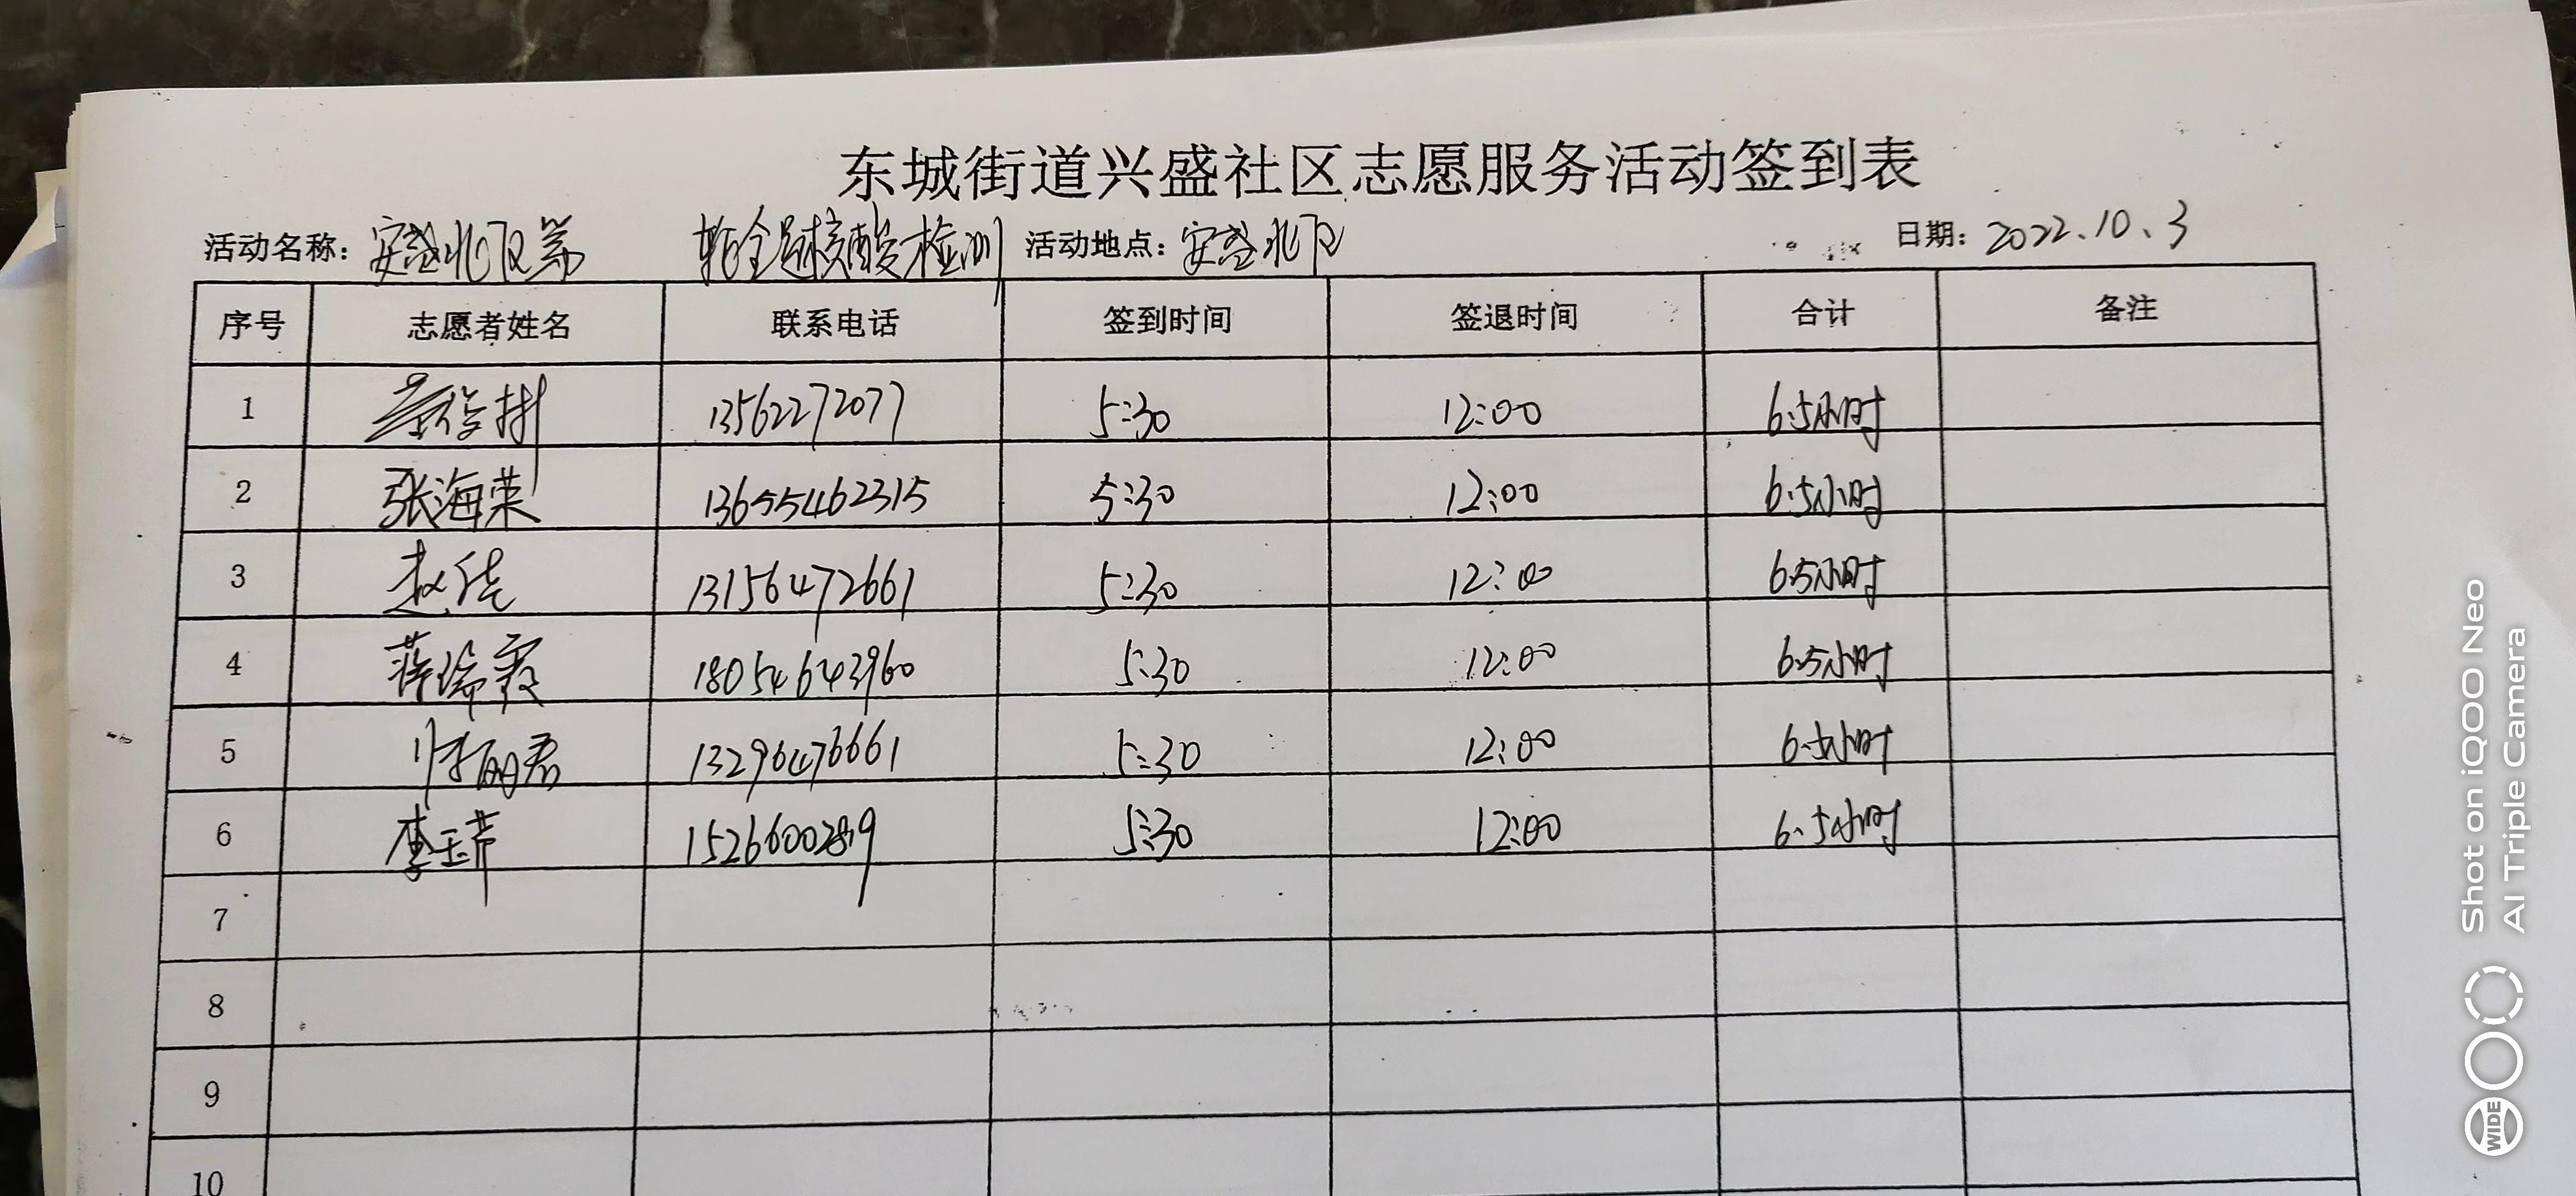 东城街道兴盛社区志愿服务活动签到表
活动名称：安盛北区第 轮全员核酸检测 活动地点：安盛北区 日期：2022.10.3
序号 志愿者姓名 联系电话 签到时间 签退时间 合计 备注
1 13562272077 5:30 12:00 6.5小时
2 张海荣 13655462315 5:30 12:00 6.5小时
3 赵佳 13156472661 5:30 12:00 6.5小时
4 蒋瑞霞 18054643960 5:30 12:00 6.5小时
5 13296476661 5:30 12:00 6.5小时
6 李玉芹 5:30 12:00 6.5小时
7
8
9
10
Shot on iQOO Neo
AI Triple Camera
WIDE